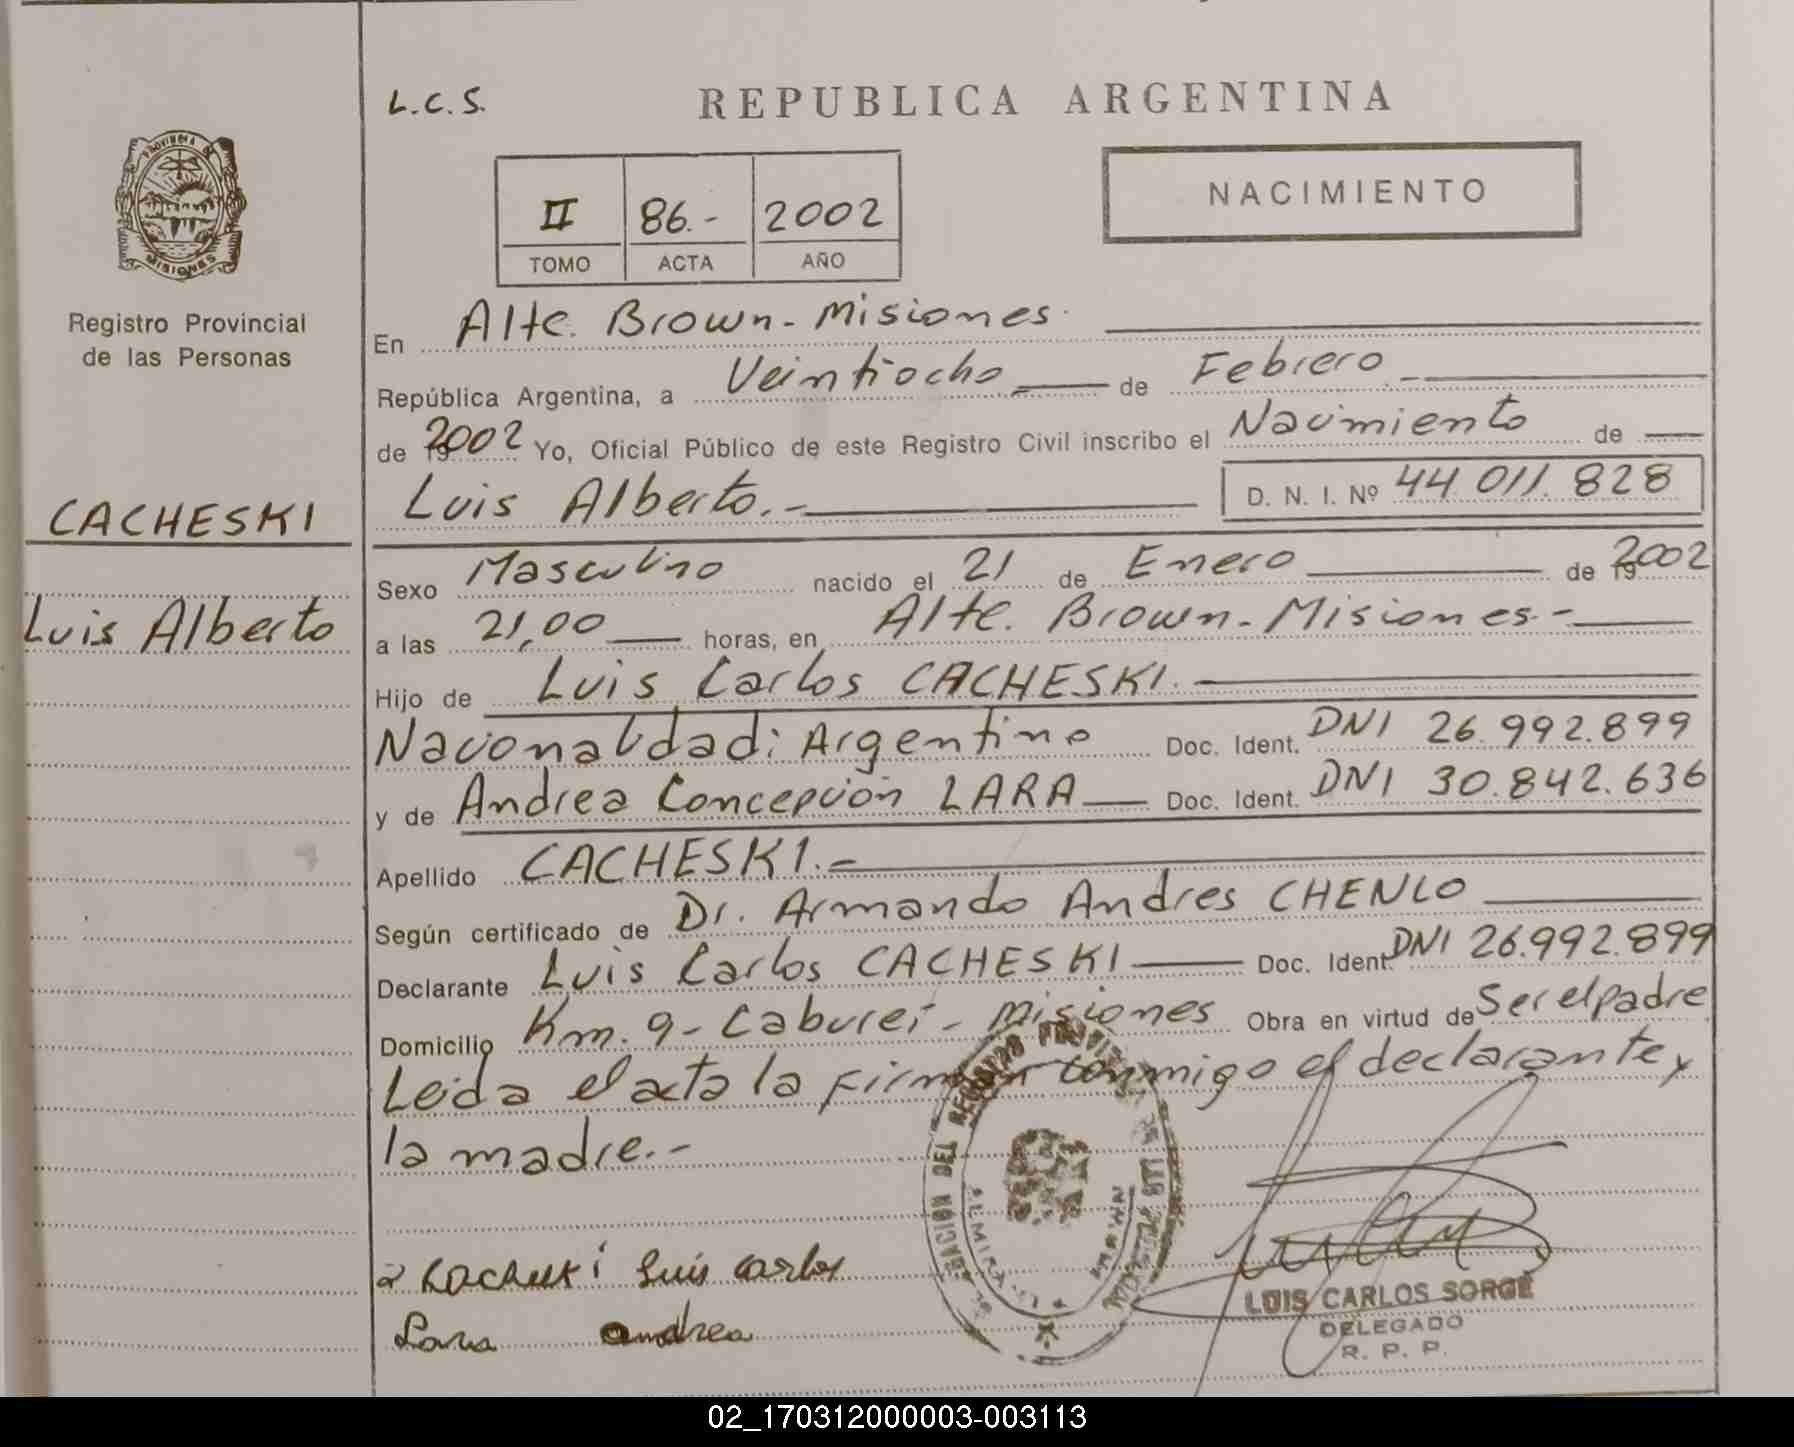 L.C.S.
REPUBLICA ARGENTINA
PROVINCIA DE
MISIONES
Registro Provincial
de las Personas
II 86.- 2002
TOMO ACTA AÑO
NACIMIENTO
En Alte. Brown - Misiones.
República Argentina, a Veintiocho de Febrero
de 2002 Yo, Oficial Público de este Registro Civil inscribo el Nacimiento de
Luis Alberto.- D. N. I. Nº 44.011.828
CACHESKI
Luis Alberto
Sexo Masculino nacido el 21 de Enero de 2002
a las 21,00 horas, en Alte. Brown - Misiones.-
Hijo de Luis Carlos CACHESKI.
Nacionalidad: Argentino Doc. Ident. DNI 26.992.899
y de Andrea Concepción LARA Doc. Ident. DNI 30.842.636
Apellido CACHESKI.-
Según certificado de Dr. Armando Andres CHENLO
Declarante Luis Carlos CACHESKI Doc. Ident. DNI 26.992.899
Domicilio Km. 9 - Caburei - Misiones Obra en virtud de Ser el padre
Leida el acta la firman conmigo el declarante y
la madre.-
Luis Carlos
Lara andrea
DEL REGISTRO
LUIS CARLOS SORGE
DELEGADO
R. P. P.
02_170312000003-003113